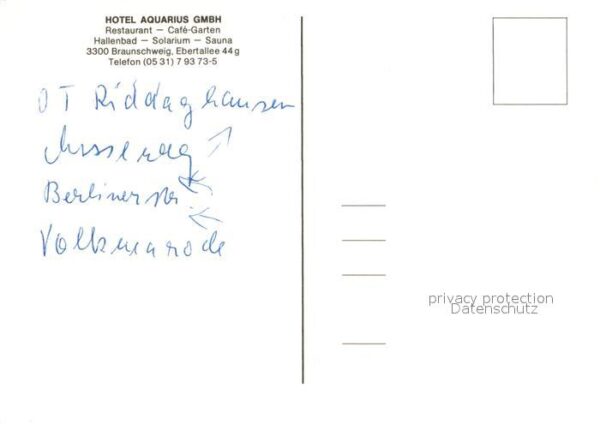 HOTEL AQUARIUS GMBH
Restaurant — Café-Garten
Hallenbad — Solarium — Sauna
3300 Braunschweig, Ebertallee 44g
Telefon (05 31) 7 93 73-5
OT Riddaghausen
Berlinerstr.
Volkmarode
privacy protection
Datenschutz